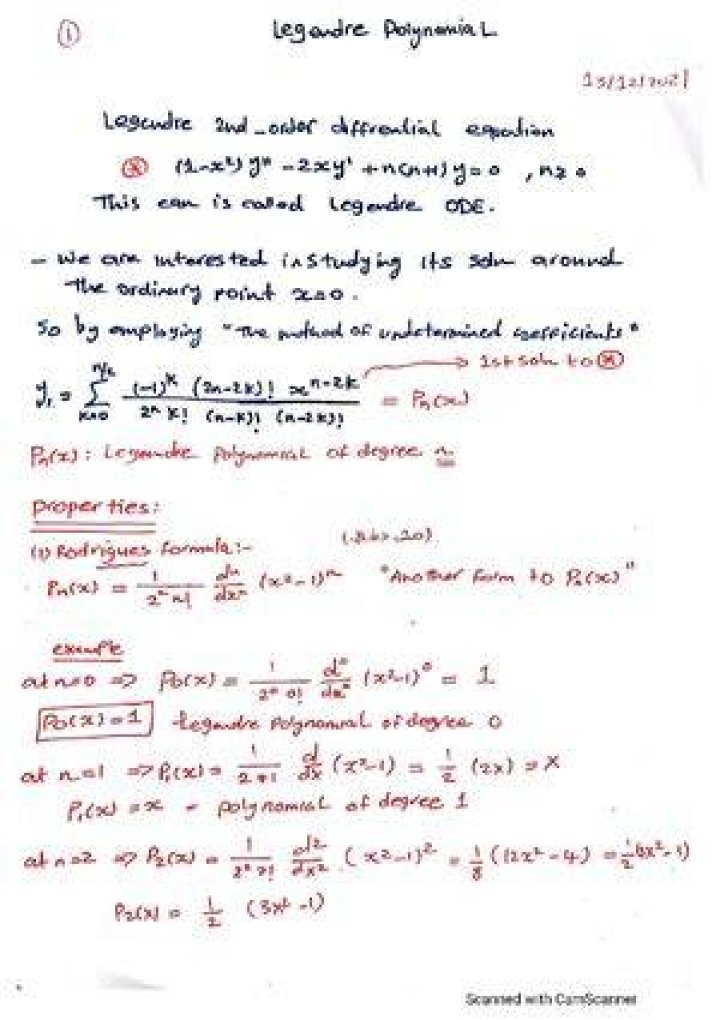 ①
Legendre Polynomial
13/12/2021
Legendre 2nd-order diffrential equation
⊛ (1-x²) y" - 2xy' + n(n+1) y = 0 , n≥0
This eqn is called Legendre ODE.
- We are interested in studying its soln around
the ordinary point x=0.
So by employing "The method of undetermined coefficients"
→ 1st soln to ⊛
y₁ = Σ_{k=0}^{n/2} (-1)^k (2n-2k)! x^{n-2k} / 2^n k! (n-k)! (n-2k)! = Pn(x)
Pn(x): Legendre Polynomial of degree n
Properties:
(1) Rodrigues formula:-
Pn(x) = 1/(2^n n!) d^n/dx^n (x²-1)^n "Another form to Pn(x)"
example
at n=0 => P0(x) = 1/(2^0 0!) d^0/dx^0 (x²-1)^0 = 1
P0(x)=1 Legendre Polynomial of degree 0
at n=1 => P1(x) = 1/(2 *1!) d/dx (x²-1) = 1/2 (2x) = x
P1(x) = x - polynomial of degree 1
at n=2 => P2(x) = 1/(2² 2!) d²/dx² (x²-1)² = 1/8 (12x²-4) = 1/2 (3x²-1)
P2(x) = 1/2 (3x²-1)
Scanned with CamScanner